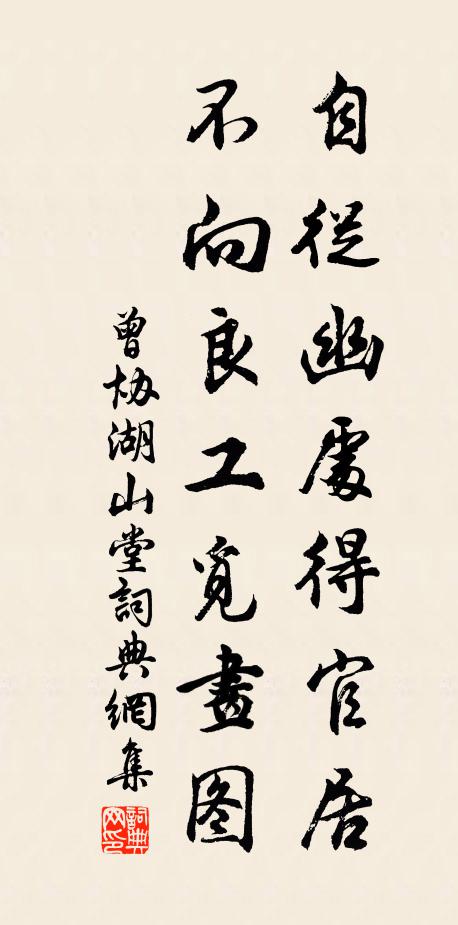 自從幽處得官居
不向良工覓畫图
曾协湖山堂詞典網集
詞典网印